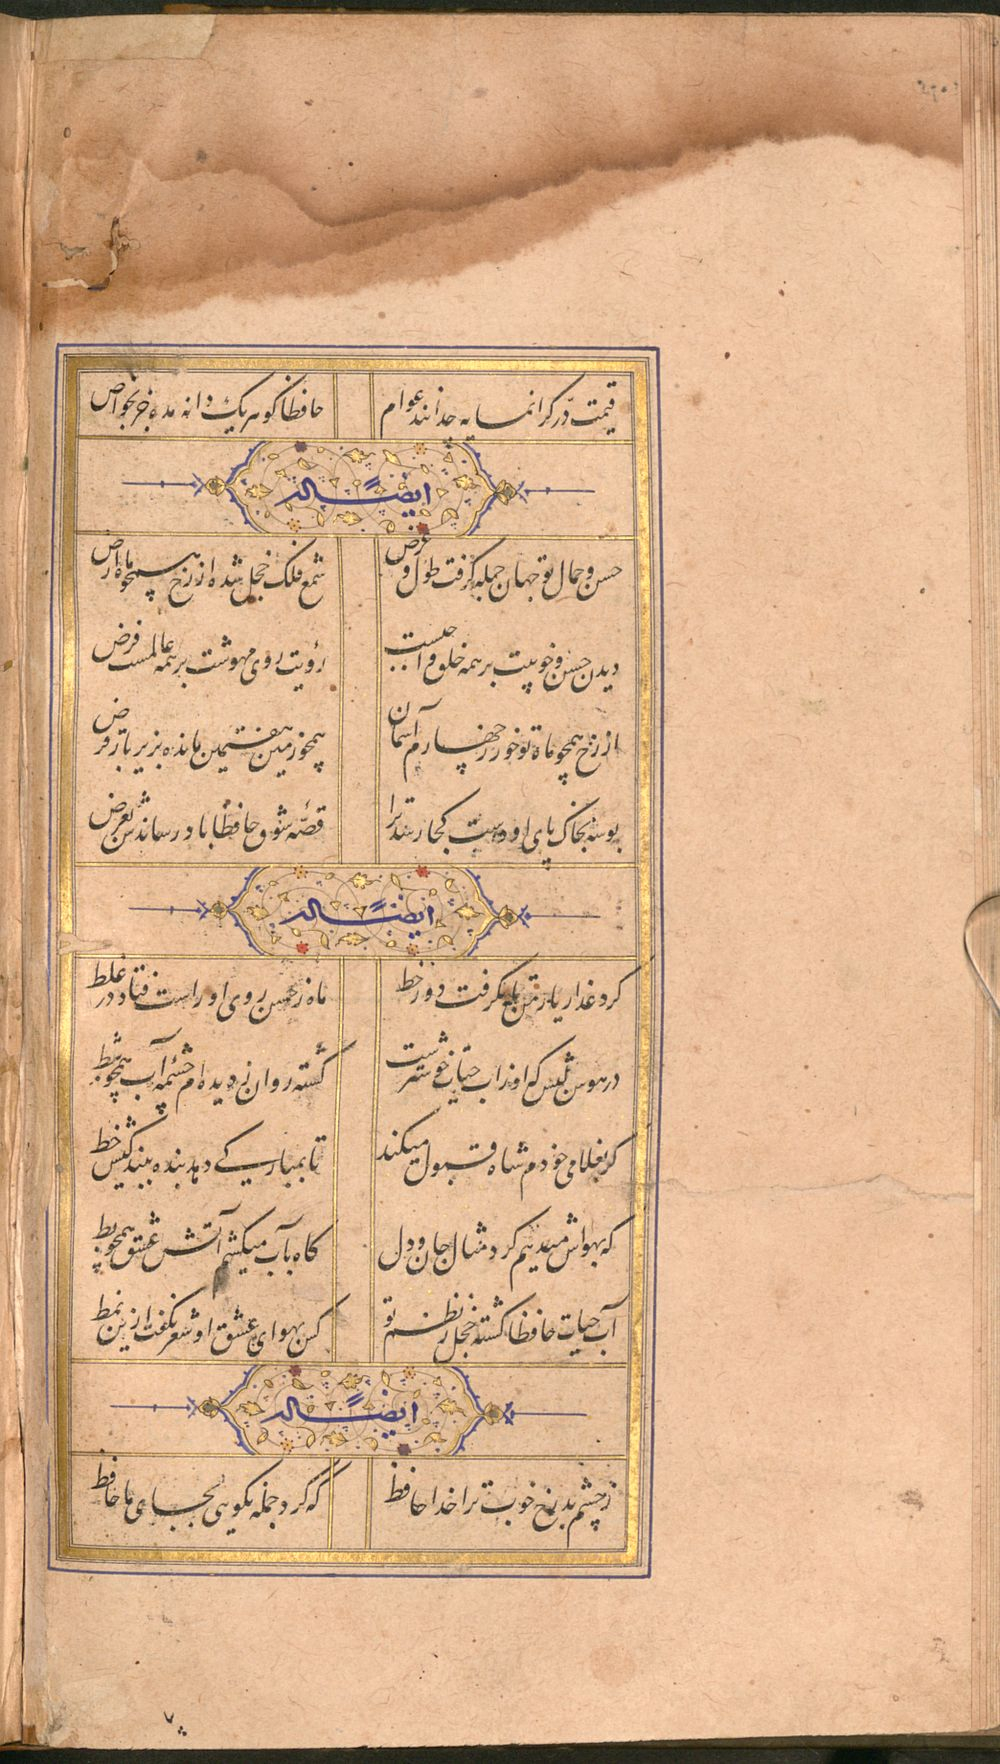 قیمت درّ کرانمایه چه دانند عوام
حافظا کوهر یک دانه مده جز بخواص
ایضًا له
حسن و جمال تو جهان جمله کرفت طول و عرض
شمع فلک خجل شده از رخ همچو ماه ارض
دیدن حسن و خوبیت بر همه خلق واجبست
رؤیت روی مهوشت بر همه عالمست فرض
از رخ همچو ماه تو خور ز چهارم آسمان
همچو زمین هفتمین مانده بزیر بار قرض
بوسه بخاک پای او دست کجا رسد ترا
قصّه شوق حافظا باد رساندش بعرض
ایضًا له
کرد عذار یار من تا بکرفت دور خط
ماه ز حسن روی او راست فتاد در غلط
در هوس لبش که او ز آب حیات خوشترست
کشته روان ز دیده ام چشمه آب همچو شط
کر بغلامی خودم شاه قبول میکند
تا بمبارکی دهد بنده ببندکیش خط
که بهواش میدهم کرد مثال جان و دل
کاه بآب میکشم آتش عشق همچو بط
آب حیات حافظا کشته خجل ز نظم تو
کس بهوای عشق او شعر نکفت ازین نمط
ایضًا له
ز چشم بد رخ خوب ترا خدا حافظ
که کرد جمله نکویی بجای ما حافظ